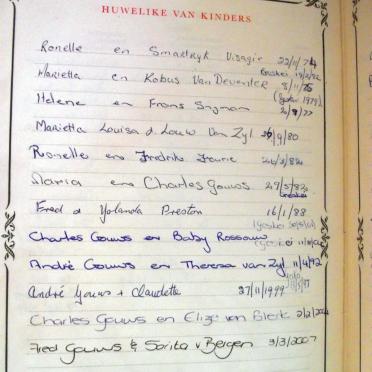 HUWELIKE VAN KINDERS
Ronelle en Smartryk Visagie 22/11/74
Geskei
Marietta en Kobus Van Deventer 8/11/75
(Geskei 1979)
Helene en Frans Snyman
Marietta Louisa & Louw Van Zyl /9/80
Ronelle en Fredrik Fourie
Maria en Charles Gouws
Geskei
Fred & Yolanda Preston 16/1/88
(Geskei
Charles Gouws en Baby Rossouw
Geskei
André Gouws en Theresa van Zyl 11/4/92
André Gouws + Claudette 27/11/1999
Charles Gouws en Elize von Blerk 2/2/
Fred Gouws & Sarita v Bergen 3/3/2007